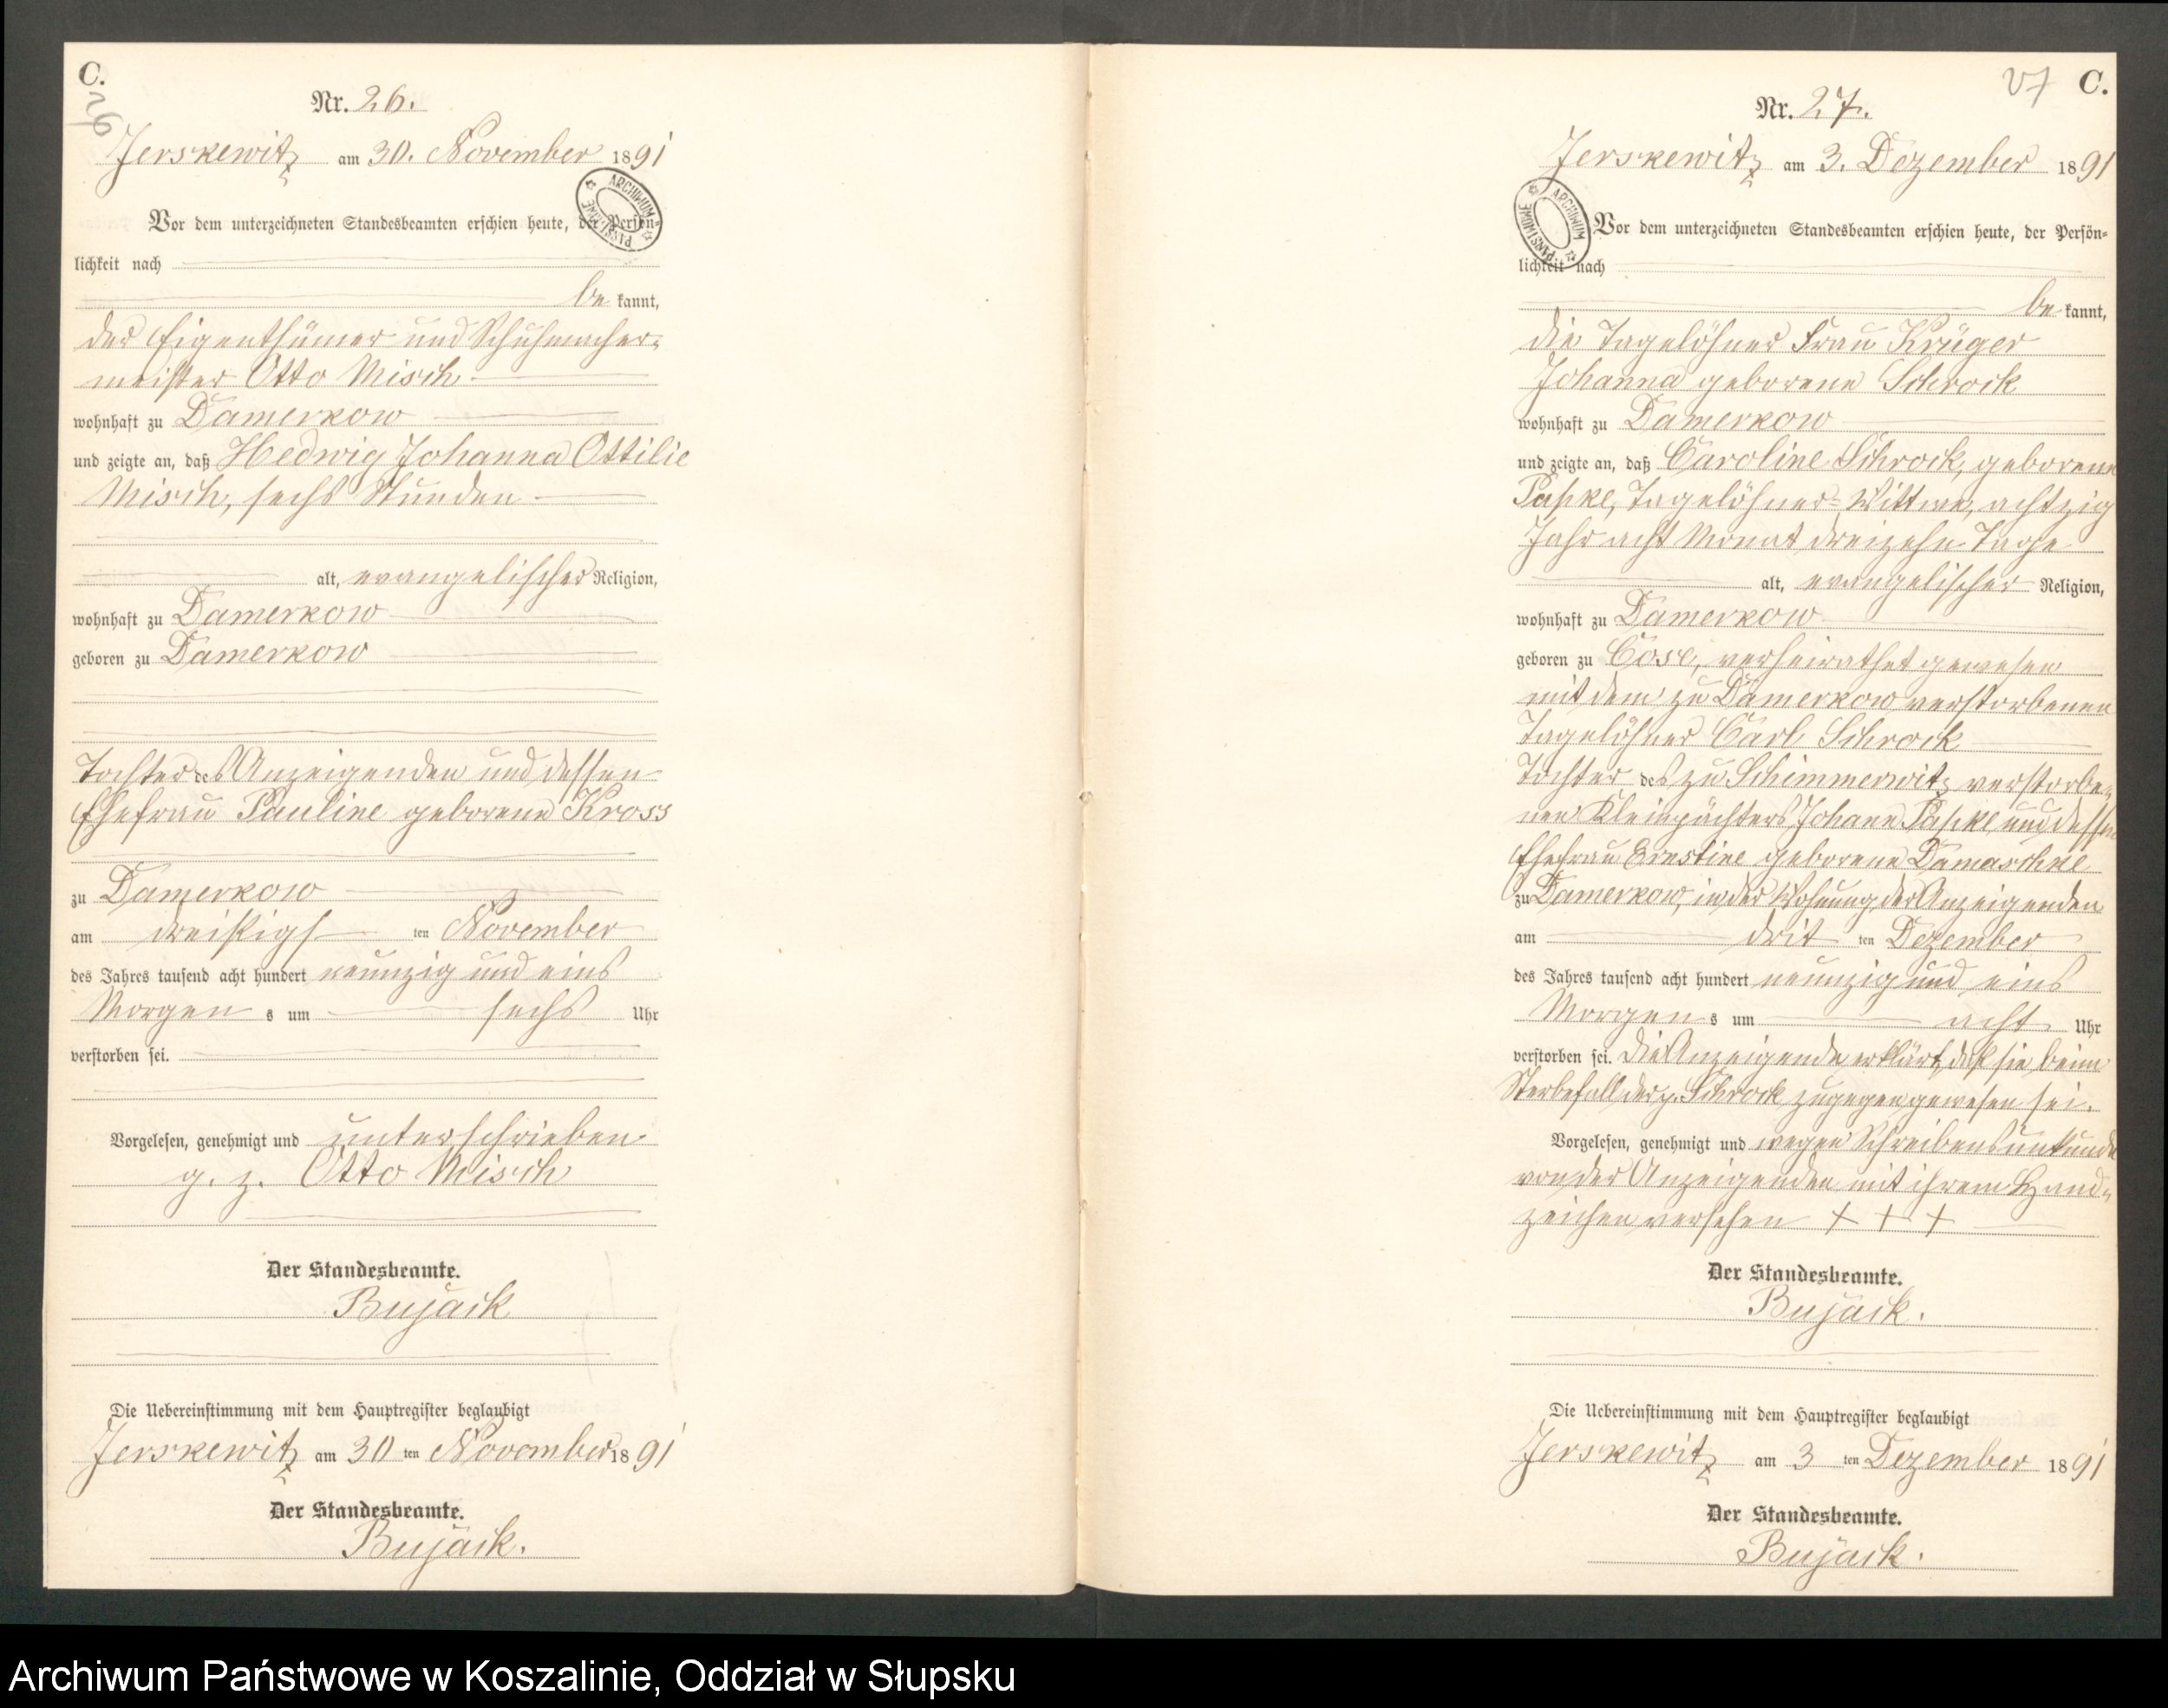 C.
26
Nr. 26.
Jerskewitz am 30. November 1891
ARCHIWUM PAŃSTWOWE
Vor dem unterzeichneten Standesbeamten erschien heute, der Persön-
lichkeit nach
be kannt,
der Eigenthümer und Schuhmacher-
meister Otto Misch
wohnhaft zu Damerkow
und zeigte an, daß Hedwig Johanna Ottilie
Misch, sechs Stunden
alt, evangelischer Religion,
wohnhaft zu Damerkow
geboren zu Damerkow
Tochter des Anzeigenden und dessen
Ehefrau Pauline geborene Kross
zu Damerkow
am dreißigs ten November
des Jahres tausend acht hundert neunzig und eins
Morgen s um sechs Uhr
verstorben sei.
Vorgelesen, genehmigt und unterschrieben
g. z. Otto Misch
Der Standesbeamte.
Bujack
Die Uebereinstimmung mit dem Hauptregister beglaubigt
Jerskewitz am 30 ten November 1891
Der Standesbeamte.
Bujack.
27 C.
Nr. 27.
Jerskewitz am 3. Dezember 1891
ARCHIWUM PAŃSTWOWE
Vor dem unterzeichneten Standesbeamten erschien heute, der Persön-
lichkeit nach
be kannt,
die Tagelöhner Frau Krüger
Johanna geborene Schrock
wohnhaft zu Damerkow
und zeigte an, daß Caroline Schrock, geborene
Papke, Tagelöhner-Wittwe, achtzig
Jahr acht Monat dreizehn Tage
alt, evangelischer Religion,
wohnhaft zu Damerkow
geboren zu Cose, verheirathet gewesen
mit dem zu Damerkow verstorbenen
Tagelöhner Carl Schrock
Tochter des zu Schimmerwitz verstorbe-
nen Kleinpächters Johann Papke und dessen
Ehefrau Ernstine geborene Damaschke
zu Damerkow, in der Wohnung der Anzeigenden
am drit ten Dezember
des Jahres tausend acht hundert neunzig und eins
Morgen s um acht Uhr
verstorben sei. Die Anzeigende erklärt, daß sie beim
Sterbefall der p. Schrock zugegen gewesen sei.
Vorgelesen, genehmigt und wegen Schreibensunkunde
von der Anzeigenden mit ihrem Hand-
zeichen versehen + + +
Der Standesbeamte.
Bujack.
Die Uebereinstimmung mit dem Hauptregister beglaubigt
Jerskewitz am 3 ten Dezember 1891
Der Standesbeamte.
Bujack.
Archiwum Państwowe w Koszalinie, Oddział w Słupsku